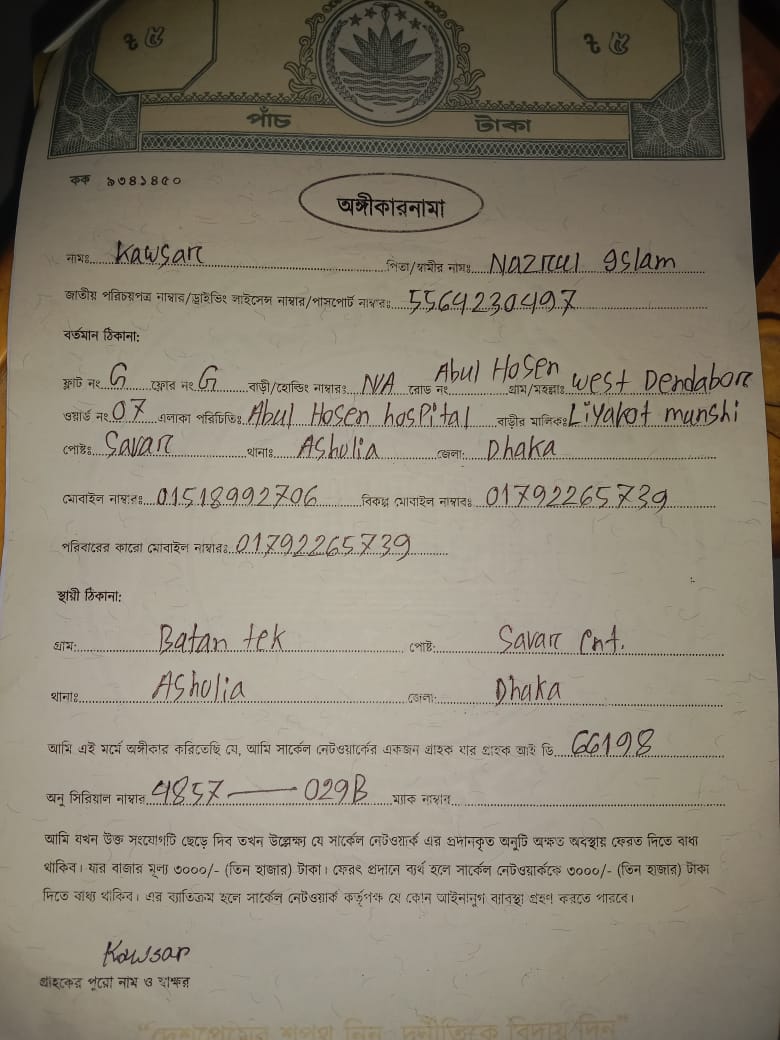 ৳ ৫ ৳ ৫
পাঁচ টাকা
কক ৯৩৪১৪৫০
অঙ্গীকারনামা
নামঃ Kawsar পিতা/স্বামীর নামঃ Nazrul Islam
জাতীয় পরিচয়পত্র নাম্বার/ড্রাইভিং লাইসেন্স নাম্বার/পাসপোর্ট নাম্বারঃ 5564230497
বর্তমান ঠিকানা:
ফ্লাট নং G ফ্লোর নং G বাড়ী/হোল্ডিং নাম্বারঃ N/A রোড নং Abul Hosen গ্রাম/মহল্লাঃ west Dendabor
ওয়ার্ড নং 07 এলাকা পরিচিতিঃ Abul Hosen hospital বাড়ীর মালিকঃ Liyakot munshi
পোষ্টঃ Savar থানাঃ Asholia জেলা: Dhaka
মোবাইল নাম্বারঃ 01518992706 বিকল্প মোবাইল নাম্বারঃ 01792265739
পরিবারের কারো মোবাইল নাম্বারঃ 01792265739
স্থায়ী ঠিকানা:
গ্রাম: Batan tek পোষ্ট: Savar Cnt.
থানাঃ Asholia জেলা: Dhaka
আমি এই মর্মে অঙ্গীকার করিতেছি যে, আমি সার্কেল নেটওয়ার্কের একজন গ্রাহক যার গ্রাহক আই ডি 66198
অনু সিরিয়াল নাম্বার 4857 — 029B ম্যাক নাম্বার
আমি যখন উক্ত সংযোগটি ছেড়ে দিব তখন উল্লেক্ষ্য যে সার্কেল নেটওয়ার্ক এর প্রদানকৃত অনুটি অক্ষত অবস্থায় ফেরত দিতে বাধ্য
থাকিব। যার বাজার মূল্য ৩০০০/- (তিন হাজার) টাকা। ফেরৎ প্রদানে ব্যর্থ হলে সার্কেল নেটওয়ার্ককে ৩০০০/- (তিন হাজার) টাকা
দিতে বাধ্য থাকিব। এর ব্যতিক্রম হলে সার্কেল নেটওয়ার্ক কর্তৃপক্ষ যে কোন আইনানুগ ব্যাবস্থা গ্রহণ করতে পারবে।
Kawsar
গ্রাহকের পুরো নাম ও স্বাক্ষর
“দেশপ্রেমের শপথ নিন, দুর্নীতিকে বিদায় দিন”